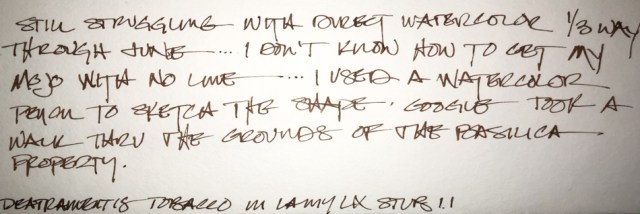 STILL STRUGGLING WITH DIRECT WATERCOLOR 1/3 WAY
THROUGH JUNE ···· I DON'T KNOW HOW TO GET MY
MOJO WITH NO LINE ···· I USED A WATERCOLOR
PENCIL TO SKETCH THE SHAPE. GOOGLE TOOK A
WALK THRU THE GROUNDS OF THE BASILICA
PROPERTY.
DEATRAMENTIS TOBACCO IN LAMY LX STUB 1.1